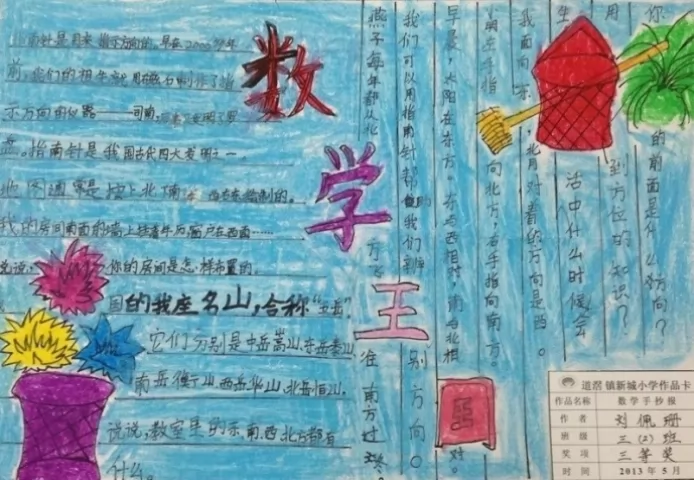 数学王
指南针是用来指示方向的。早在2000多年
前，我们的祖先就用磁石制作了指
示方向的仪器——司南，
盘。指南针是我国古代四大发明之一。
地图通常是按上北下南 绘制的。
我的房间南面的墙上挂着年历，窗户在西面……
说说， 你的房间是怎样布置的。
国的我座名山，合称“五岳”。
它们分别是中岳嵩山，东岳泰山，
南岳衡山，西岳华山，北岳恒山。
说说，教室里的东、南、西、北方都有
什么。
你 的前面是什么方向？
用 到方位的知识？
生 活中什么时候会
我面向东，北 对着的方向是西。
小明左手指 向北方，右手指向南方。
早晨，太阳在东方。东与西相对，南与北相
对。
我们可以用指南针帮 我们 别方向。
燕子每年都从北 方飞 往南方过冬。
道滘镇新城小学作品卡
作品名称 数学手抄报
作者 刘佩珊
班级 三（2）班
奖项 三等奖
时间 2013年5月